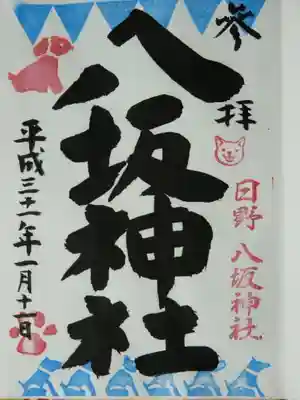 參拝
日野 八坂神社
八坂神社
平成三十一年一月十一日